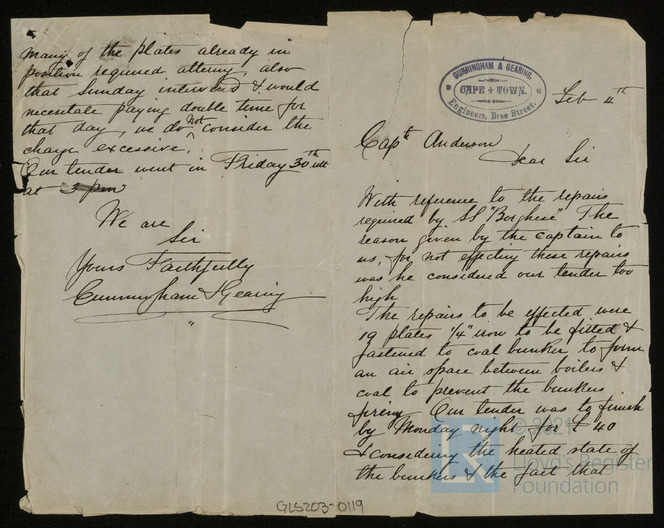 CUNNINGHAM & GEARING.
CAPE + TOWN.
Engineers, Bree Street.
Feb 4th
Capt Anderson
Dear Sir
With reference to the repairs
required by SS "Borghese" The
reason given by the Captain to
us, for not effecting these repairs
was he considered our tender too
high
The repairs to be effected were
19 plates 1/4" iron to be fitted &
fastened to coal bunker to form
an air space between boilers &
coal to prevent the bunkers
firing. Our tender was to finish
by Monday night for £40
& considering the heated state of
the bunkers & the fact that
many of the plates already in
position required altering, also
that Sunday intervened & would
necesitate paying double time for
that day, we do not consider the
charge excessive.
Our tender went in Friday 30th ult
at
We are
Sir
Yours Faithfully
Cunningham & Gearing
GLS203-0119
© 2021
Lloyd's Register
Foundation